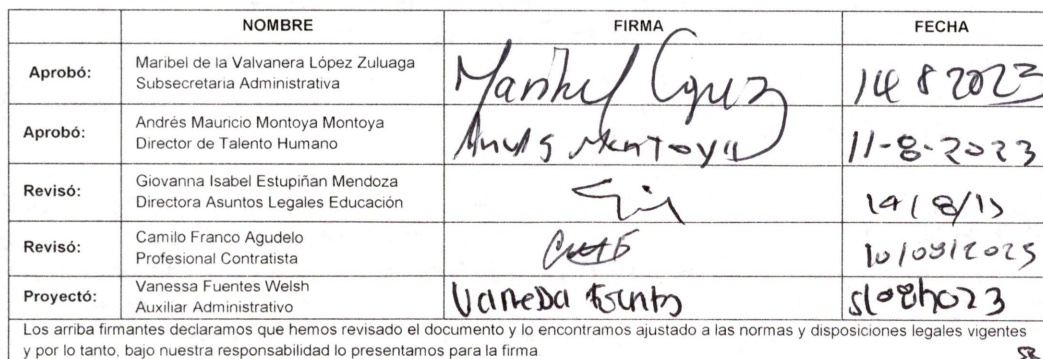 NOMBRE FIRMA FECHA
Aprobó: Maribel de la Valvanera López Zuluaga
Subsecretaria Administrativa
Maribel López 14 8 2023
Aprobó: Andrés Mauricio Montoya Montoya
Director de Talento Humano
Andrés Montoya 11-8-2023
Revisó: Giovanna Isabel Estupiñan Mendoza
Directora Asuntos Legales Educación
Revisó: Camilo Franco Agudelo
Profesional Contratista
Proyectó: Vanessa Fuentes Welsh
Auxiliar Administrativo
Vanessa Fuentes
Los arriba firmantes declaramos que hemos revisado el documento y lo encontramos ajustado a las normas y disposiciones legales vigentes
y por lo tanto, bajo nuestra responsabilidad lo presentamos para la firma.